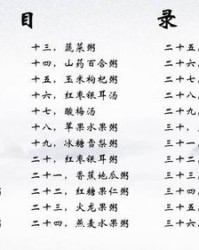 目 录
十三，蔬菜粥
十四，山药百合粥
十五，玉米枸杞粥
十六，红枣银耳汤
十七，酸梅汤
十八，苹果水果粥
十九，冰糖雪梨粥
二十，红枣银耳粥
二十一，香蕉地瓜粥
二十二，红糖果仁粥
二十三，火龙果粥
二十四，燕麦水果粥
二十五，
二十六，
二十七，
二十八，
二十九，
三十，
三十一，
三十二，
三十三，
三十四，
三十五，
三十六，